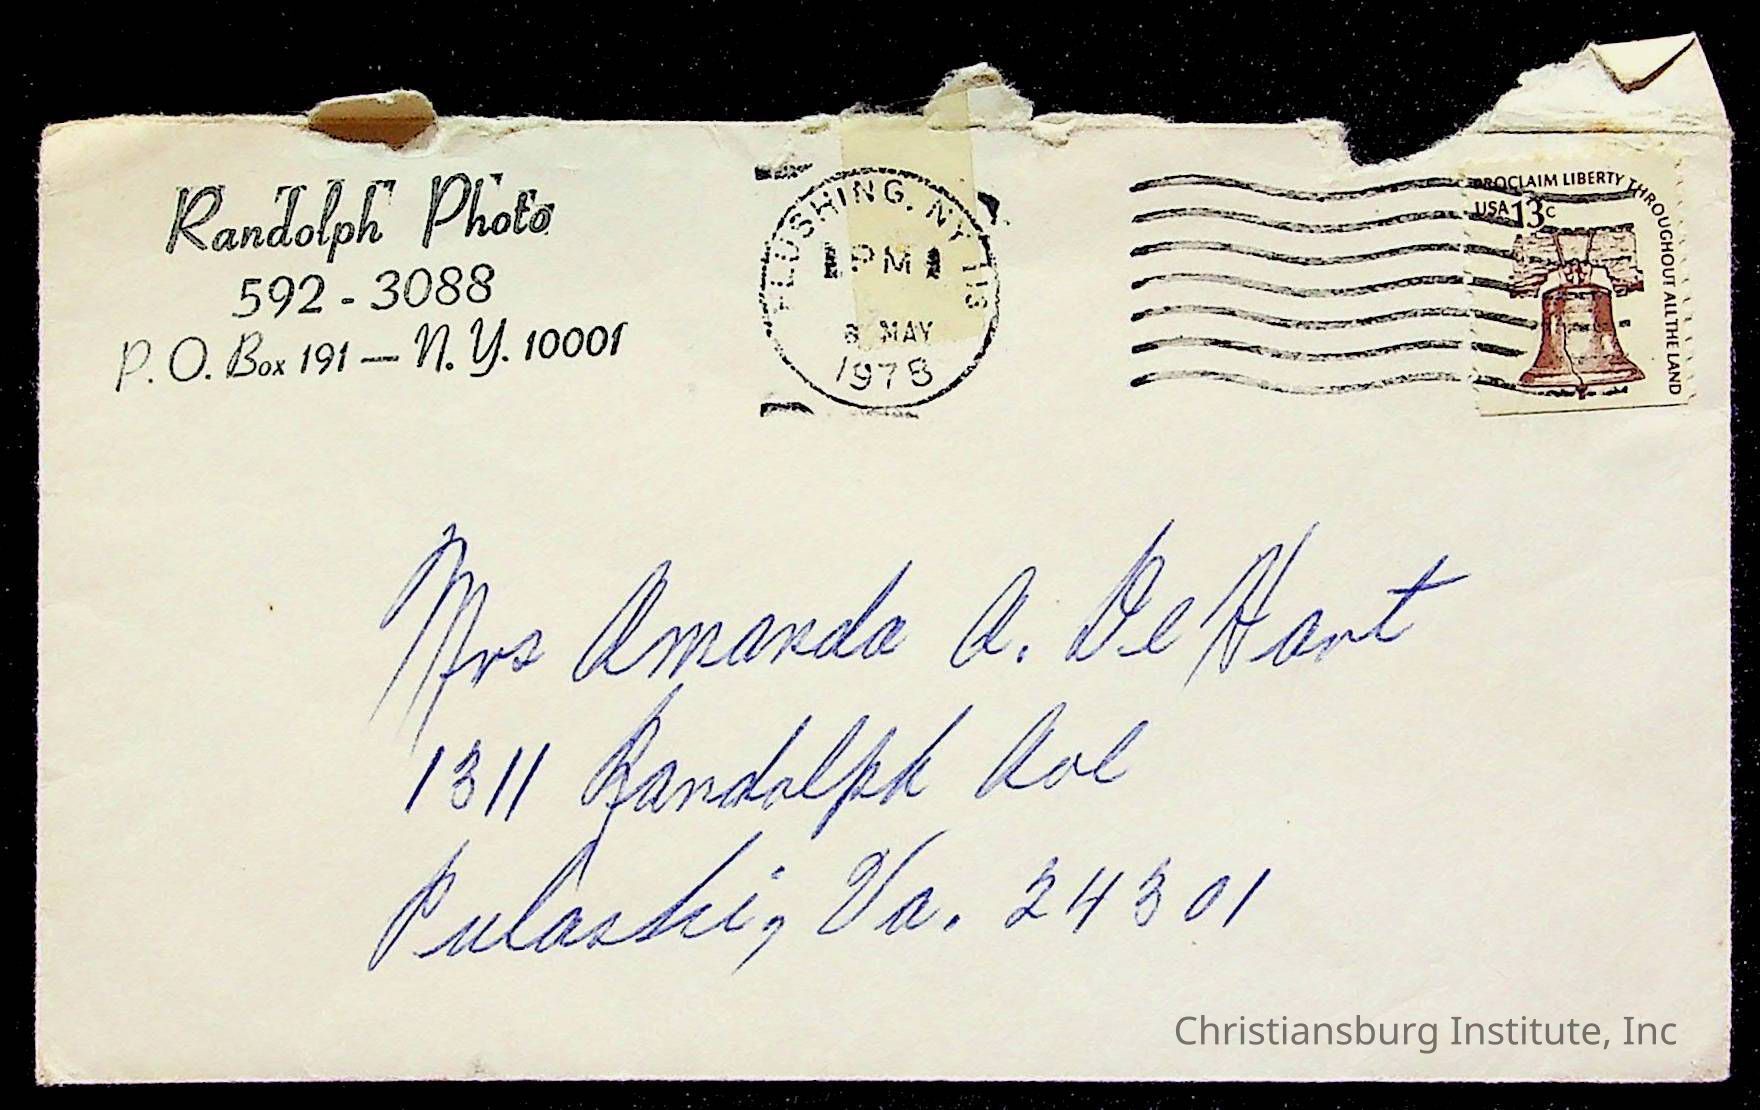 Randolph Photo
592 - 3088
P. O. Box 191 — N. Y. 10001
FLUSHING, NY 113
PM
8 MAY
1978
PROCLAIM LIBERTY THROUGHOUT ALL THE LAND
USA 13c
Mrs Amanda A. De Hart
1311 Randolph Ave
Pulaski, Va. 24301
Christiansburg Institute, Inc